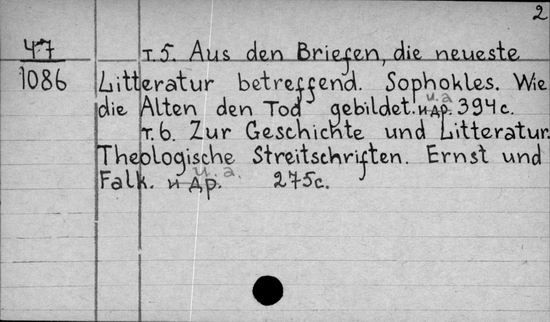 2
47
1086
т.5. Aus den Briefen, die neueste
Litteratur betreffend. Sophokles. Wie
die Alten den Tod gebildet. и др. u. a. 394 с.
т.6. Zur Geschichte und Litteratur.
Theologische Streitschriften. Ernst und
Falk. и др. u. a. 275 с.